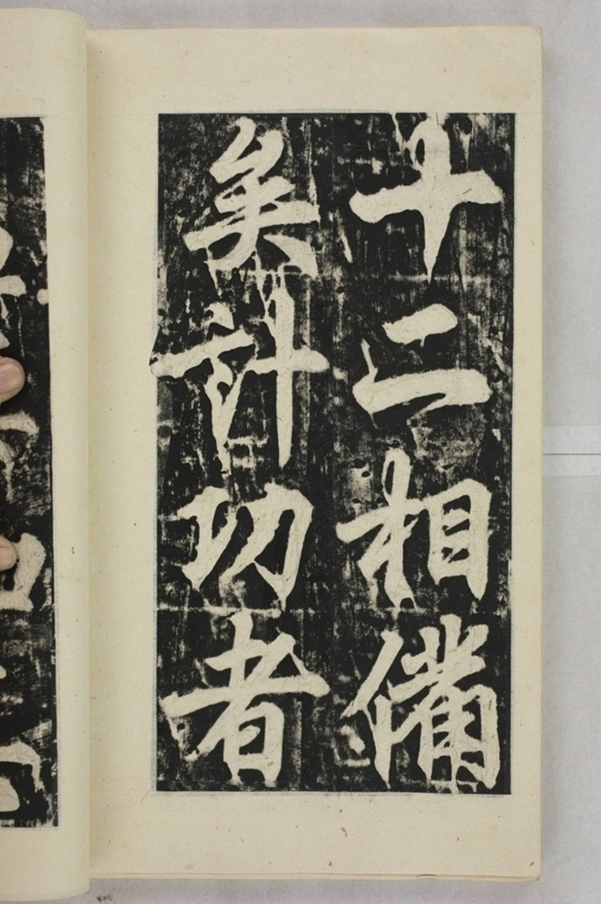 十二相備
矣計功者